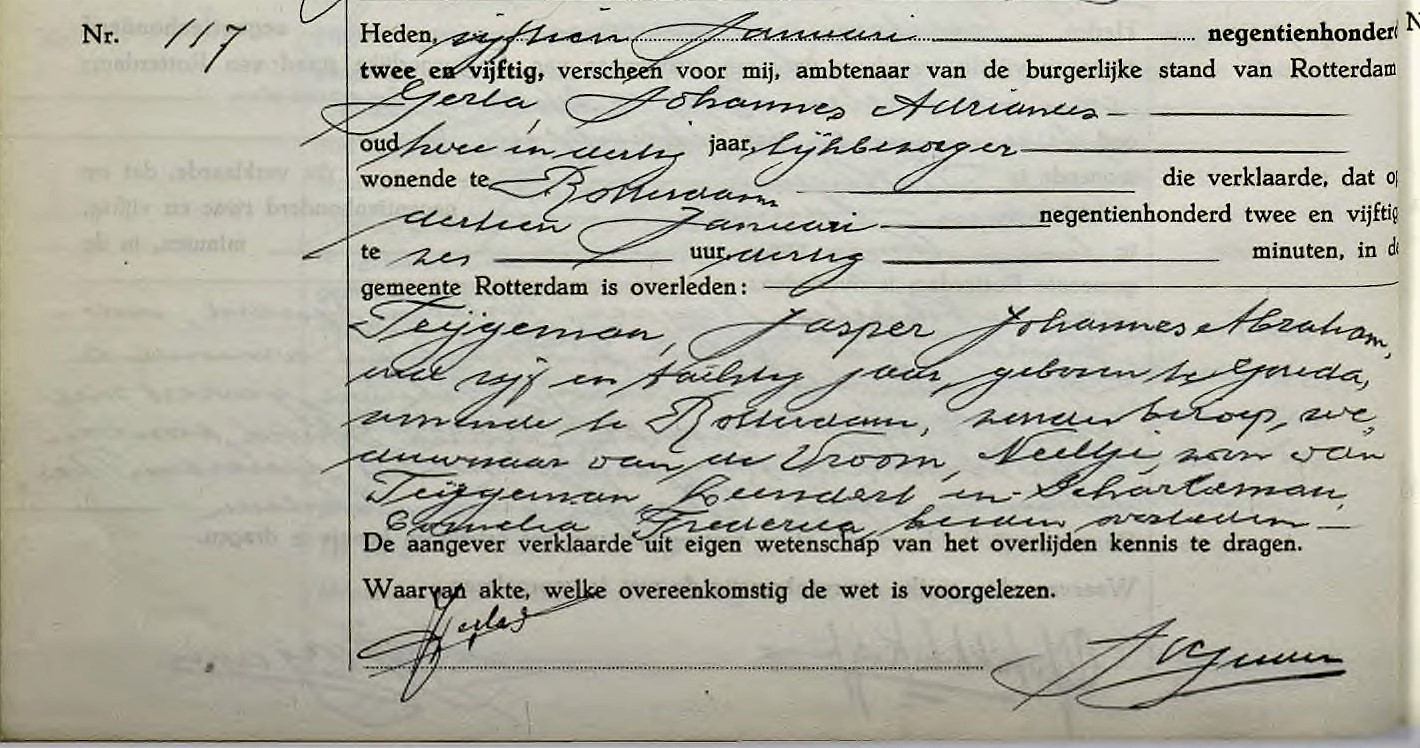 Nr. 117
Heden, vijftien Januari negentienhonderd
twee en vijftig, verscheen voor mij, ambtenaar van de burgerlijke stand van Rotterdam
Gerla, Johannes Adrianus
oud twee en dertig jaar, lijkbezorger
wonende te Rotterdam die verklaarde, dat op
dertien Januari negentienhonderd twee en vijftig
te zes uur dertig minuten, in de
gemeente Rotterdam is overleden:
Teijgeman, Jasper Johannes Abraham,
oud vijf en tachtig jaar, geboren te Gouda,
wonende te Rotterdam, zonder beroep, we-
duwnaar van de Vroom, Neeltje, zoon van
Teijgeman, Leendert en Scharleman,
Cornelia Frederica, beiden overleden
De aangever verklaarde uit eigen wetenschap van het overlijden kennis te dragen.
Waarvan akte, welke overeenkomstig de wet is voorgelezen.
Gerla